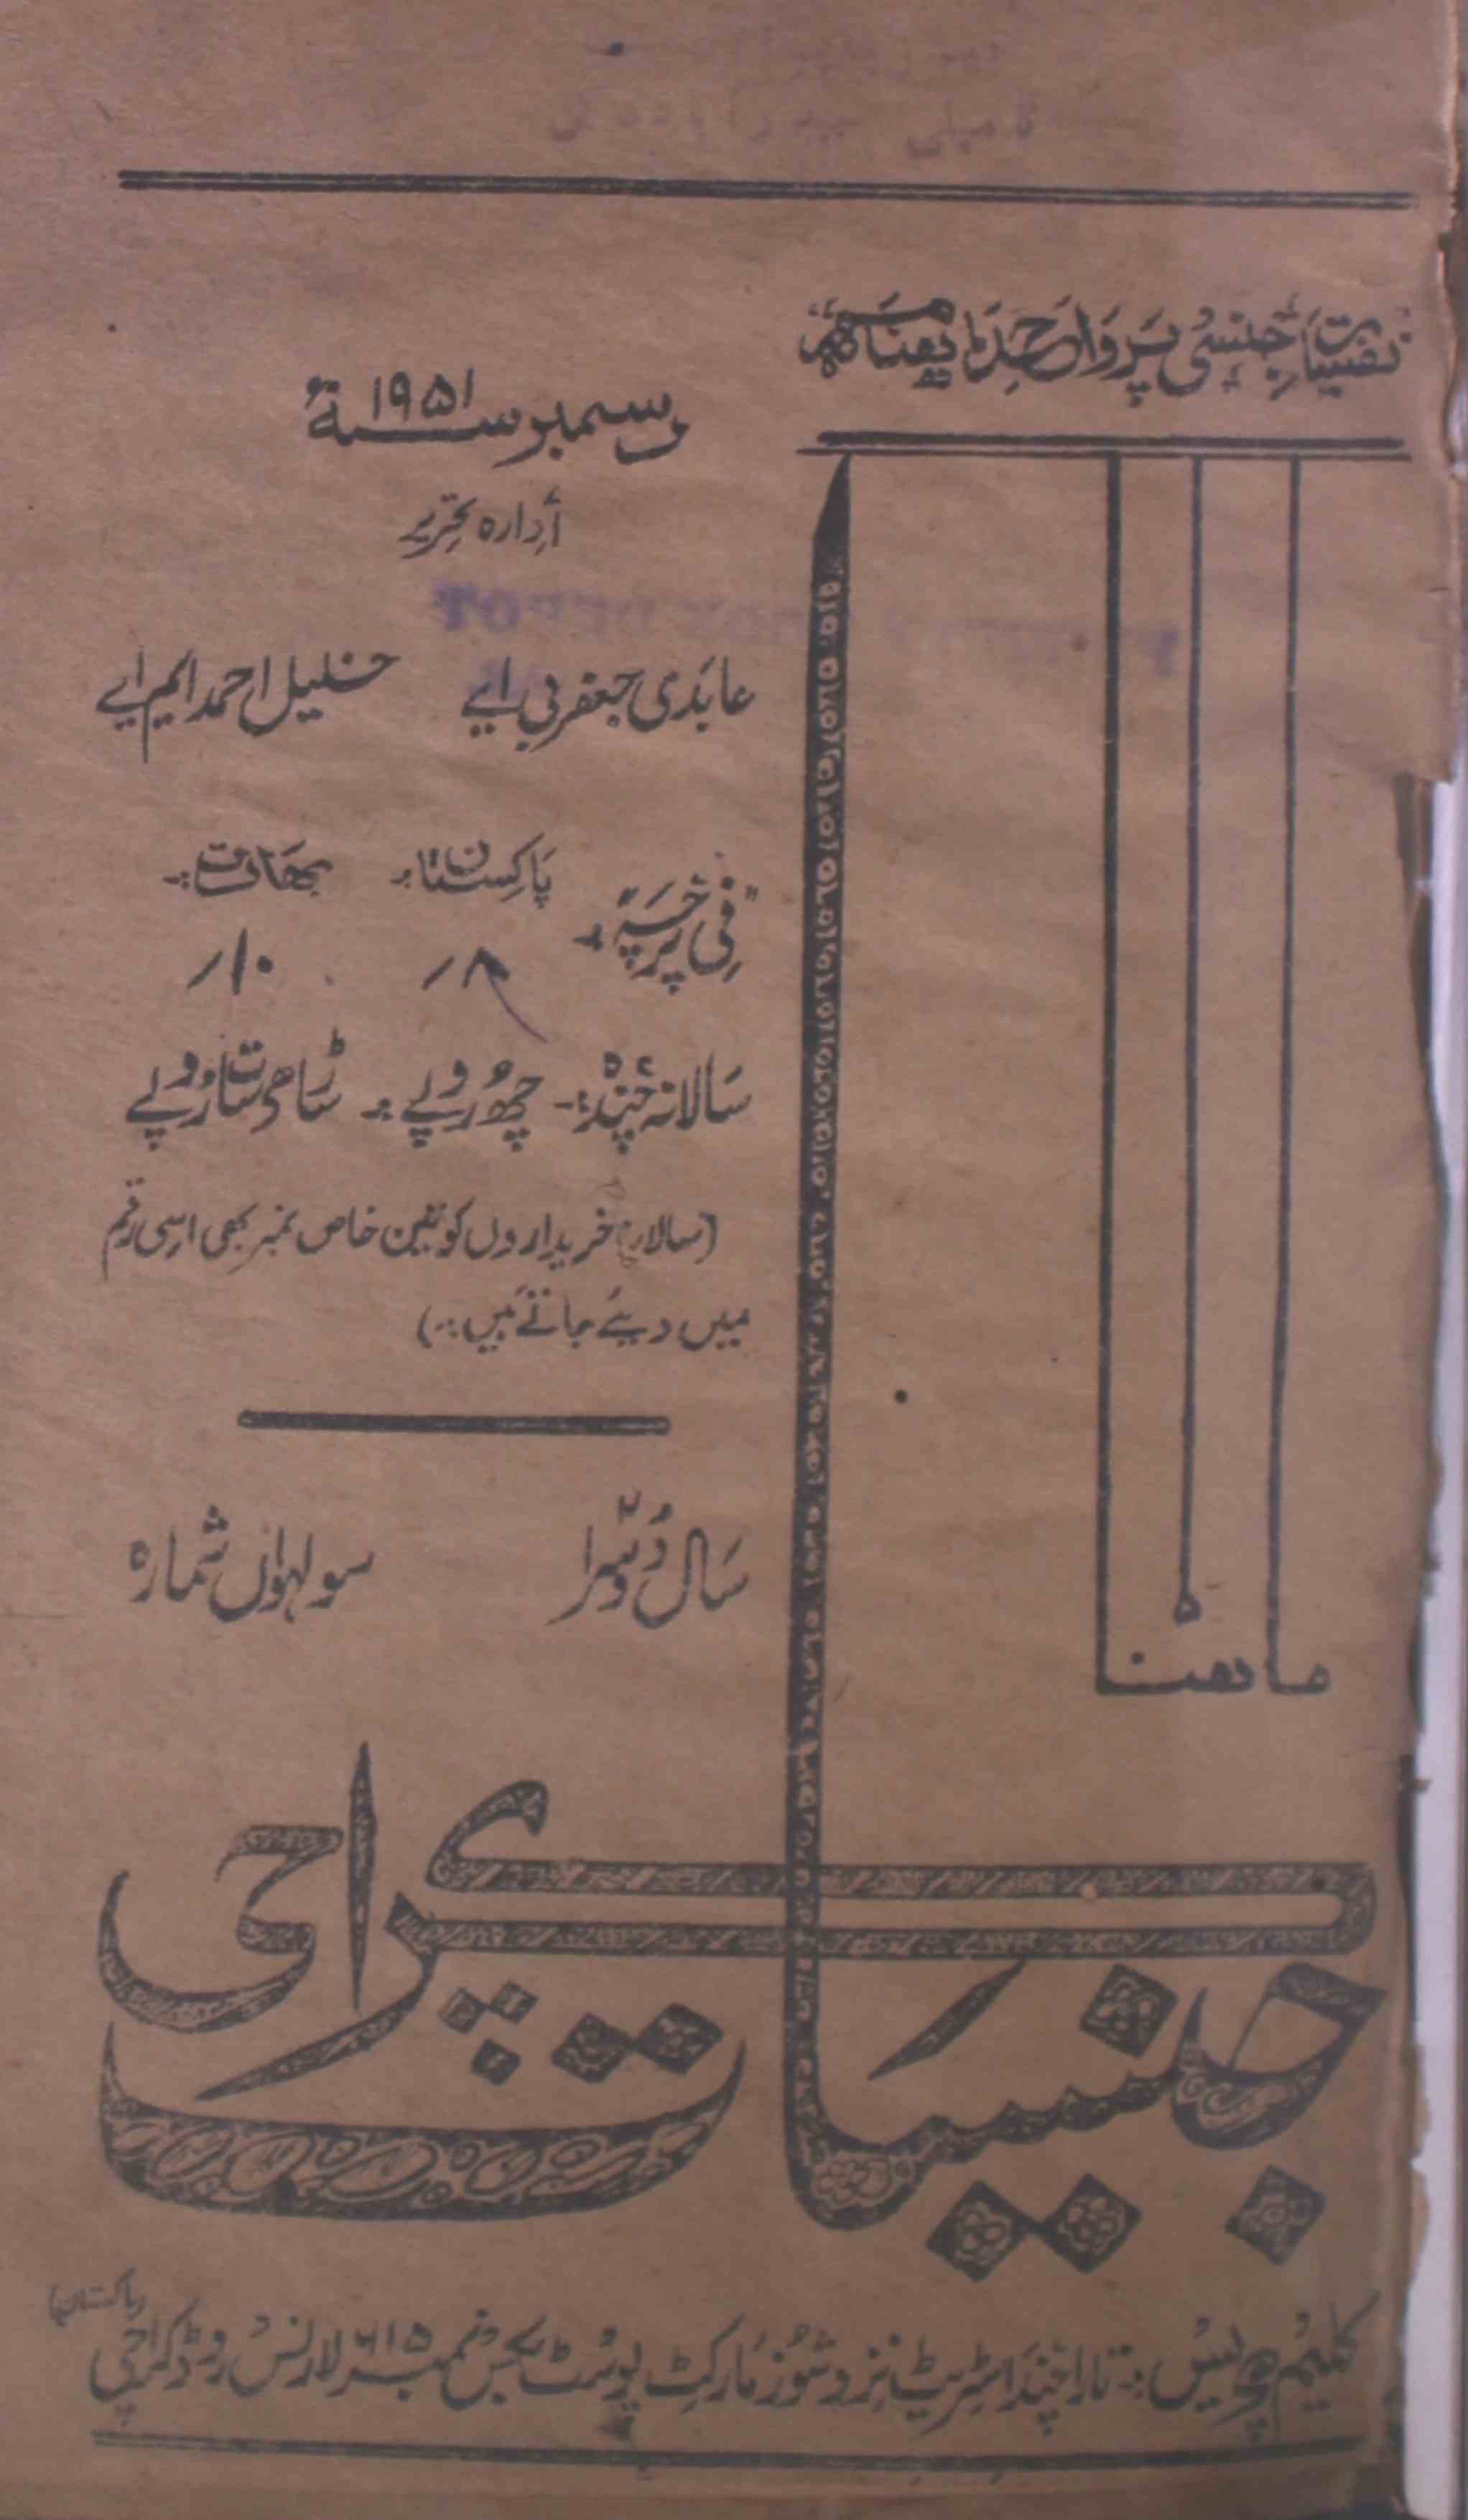 نفسیات جنسی پر واحد ماہنامہ
دسمبر سنہ ۱۹۵۱ء
ادارہ تحریر
عابدی جعفر بی اے خلیل احمد ایم اے
فی پرچہ:- پاکستان:- بھارت:-
۸ر ۱۰ر
سالانہ چندہ:- چھ روپے:- ساڑھے سات روپے
(سالانہ خریداروں کو تین خاص نمبر بھی اسی رقم
میں دیئے جاتے ہیں:-)
سال دوسرا سولہواں شمارہ
ماھنامہ
جنسیات کراچی
کلیم پریس:- تاراچند اسٹریٹ نزد شوز مارکٹ پوسٹ بکس نمبر ۶۱۵ لارنس روڈ کراچی (پاکستان)